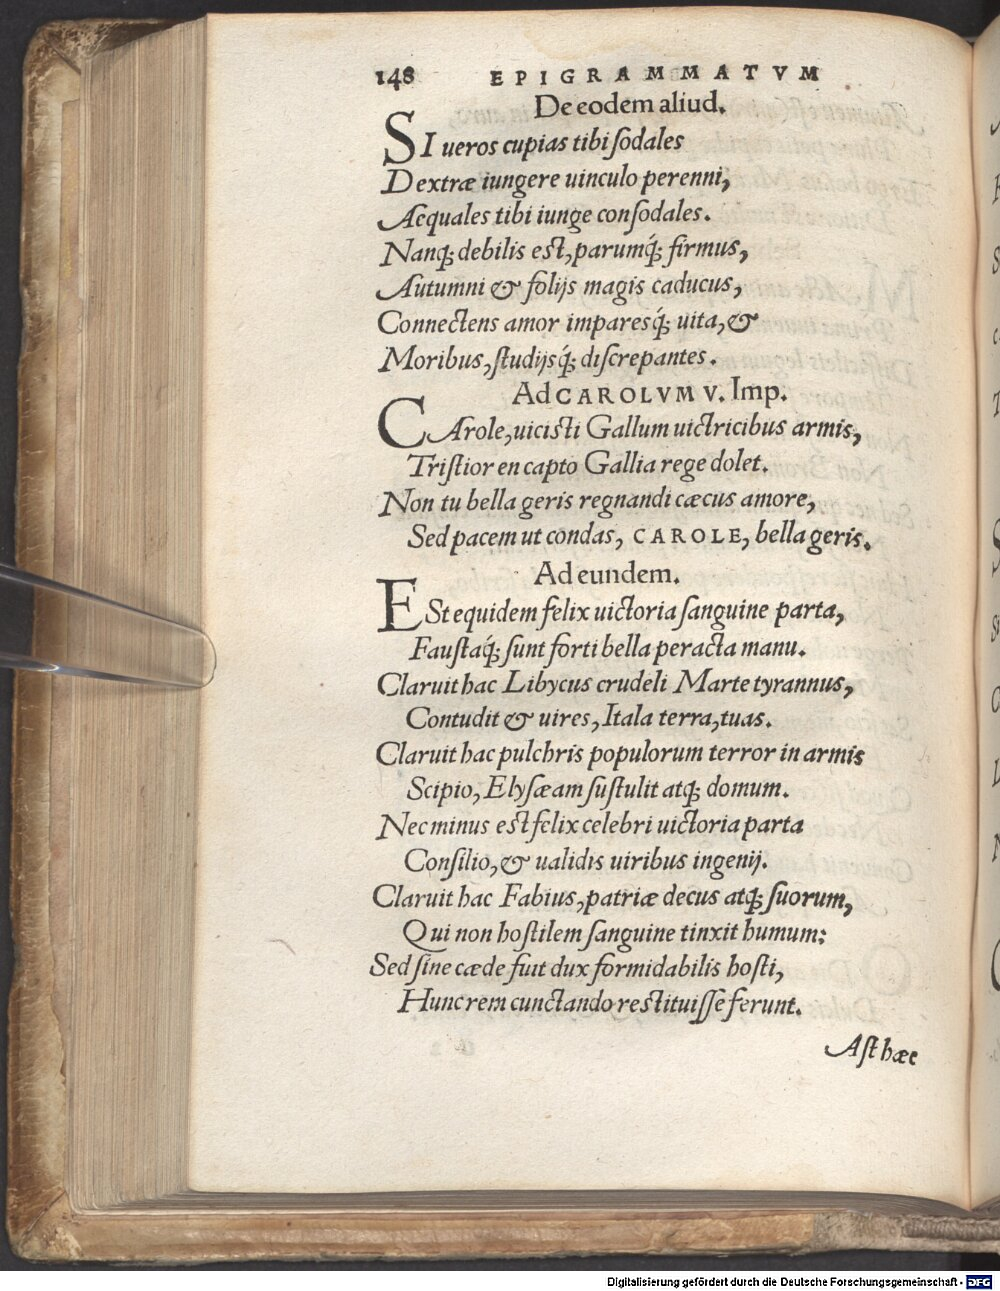 148 EPIGRAMMATVM
De eodem aliud.
SI ueros cupias tibi sodales
Dextræ iungere uinculo perenni,
Aequales tibi iunge consodales.
Nanq; debilis est, parumq́; firmus,
Autumni & folijs magis caducus,
Connectens amor impares q́; uita, &
Moribus, studijs q́; discrepantes.
Ad CAROLVM V. Imp.
CArole, uicisti Gallum uictricibus armis,
Tristior en capto Gallia rege dolet.
Non tu bella geris regnandi cæcus amore,
Sed pacem ut condas, CAROLE, bella geris.
Ad eundem.
ESt equidem felix uictoria sanguine parta,
Faustaq́; sunt forti bella peracta manu.
Claruit hac Libycus crudeli Marte tyrannus,
Contudit & uires, Itala terra, tuas.
Claruit hac pulchris populorum terror in armis
Scipio, Elysæam sustulit atq; domum.
Nec minus est felix celebri uictoria parta
Consilio, & ualidis uiribus ingenij.
Claruit hac Fabius, patriæ decus atq; suorum,
Qui non hostilem sanguine tinxit humum:
Sed sine cæde fuit dux formidabilis hosti,
Hunc rem cunctando restituisse ferunt.
Ast hæc
Digitalisierung gefördert durch die Deutsche Forschungsgemeinschaft - DFG